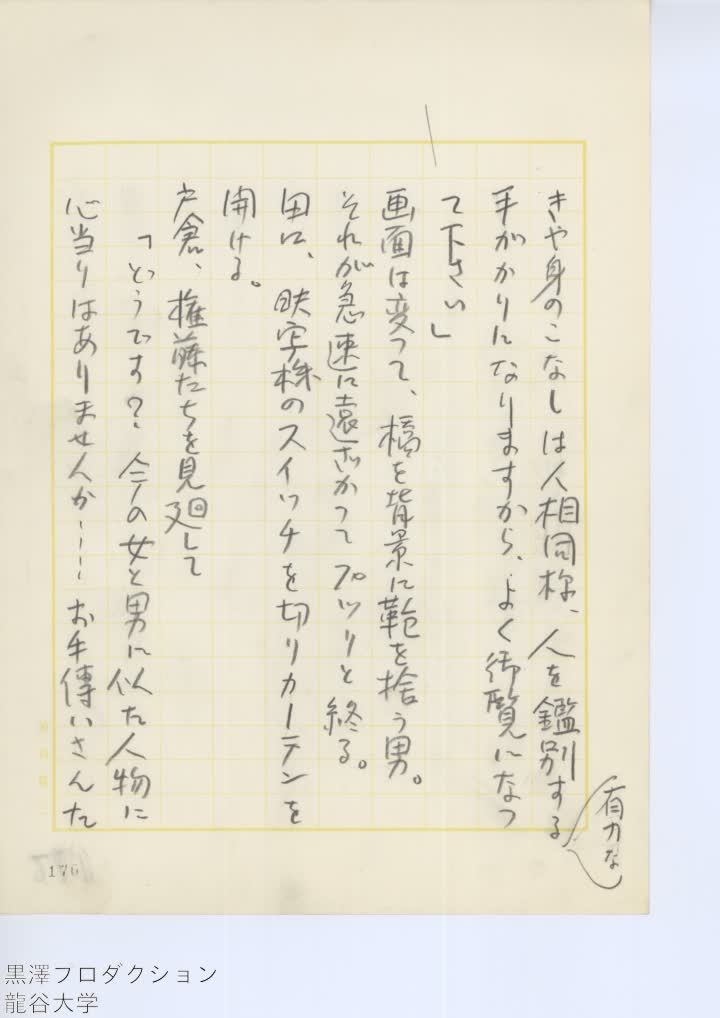 きや身のこなしは人相同様、人を鑑別する
有力な
手がかりになりますから、よく御覧になつ
て下さい」
画面は変つて、橋を背景に鞄を捨う男。
それが急速に遠ざかつてプツリと終る。
田口、映写機のスイッチを切りカーテンを
開ける。
戸倉、権藤たちを見廻して
「どうです？ 今の女と男に似た人物に
心当りはありませんか……お手傳いさんた
176
黒澤プロダクション
龍谷大学